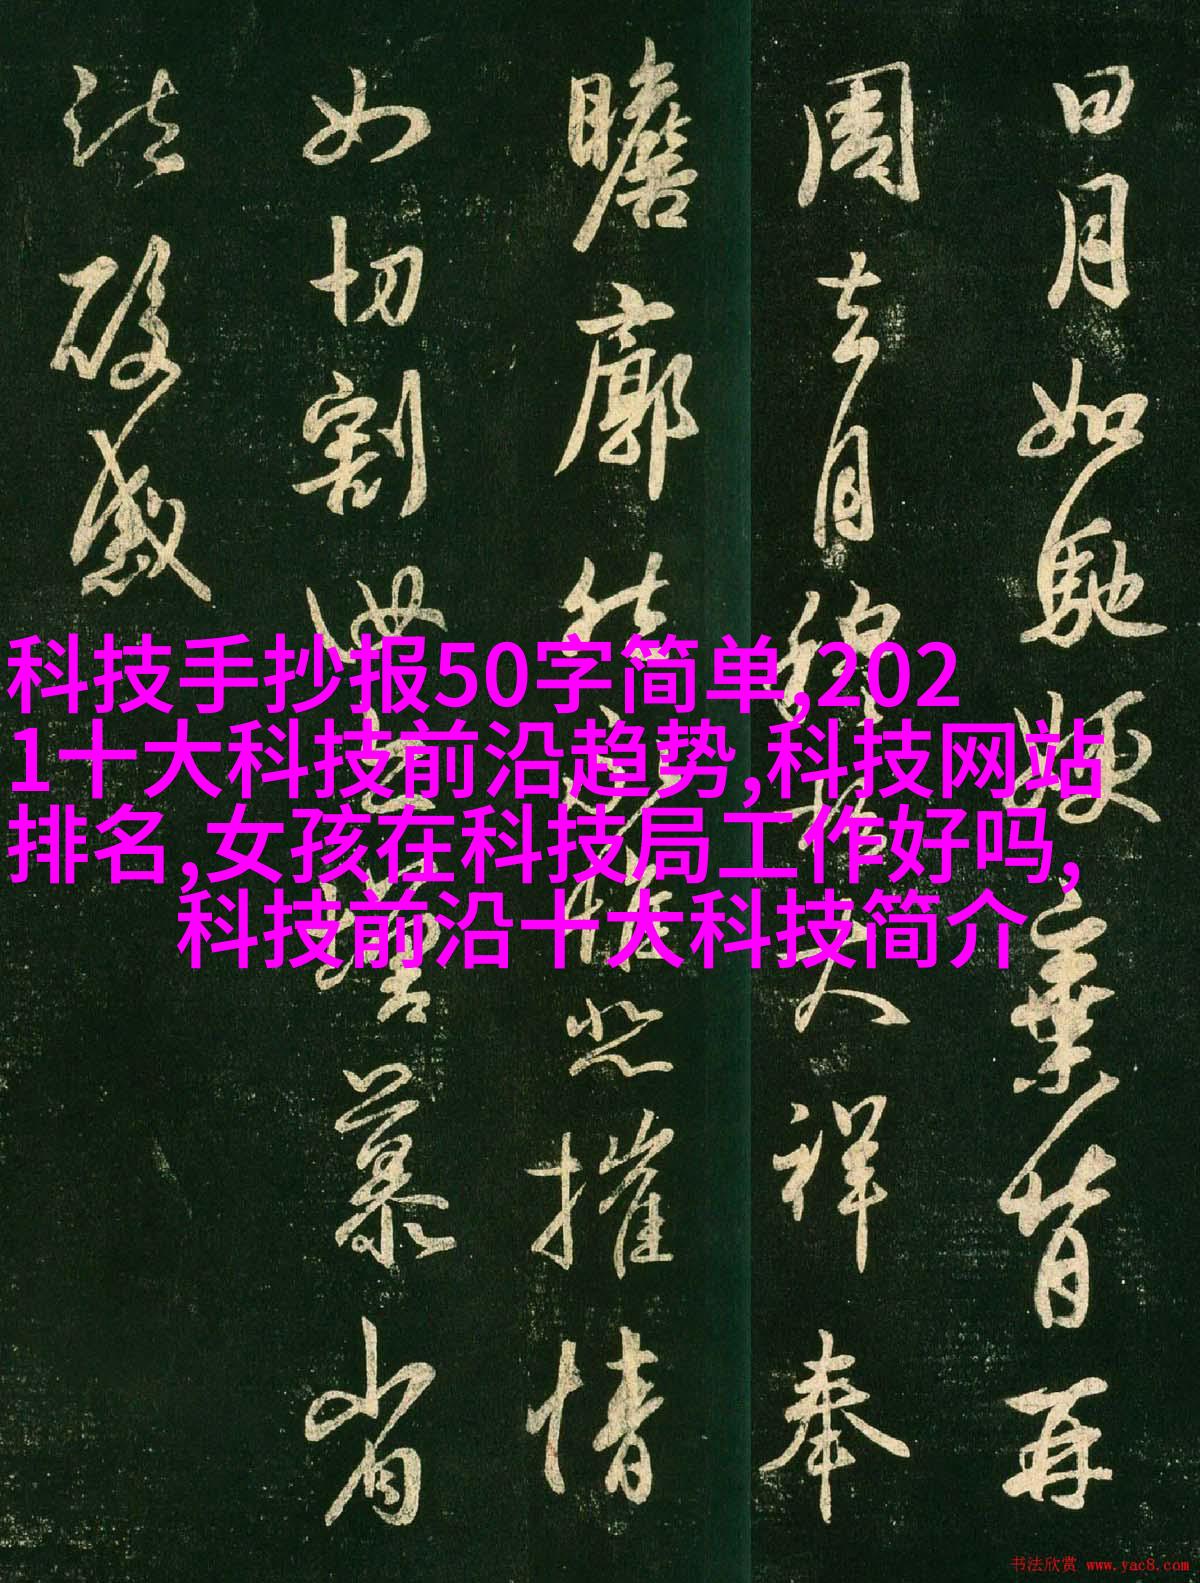 科技手抄报50字简单,202
1十大科技前沿趋势,科技网站
排名,女孩在科技局工作好吗,
科技前沿十大科技简介
日月如馳嫂棄背再
周去月穆大祥奉
瞻廓然悲摧情
如切割增慕省
酸感
书法欣赏 www.yac8.com